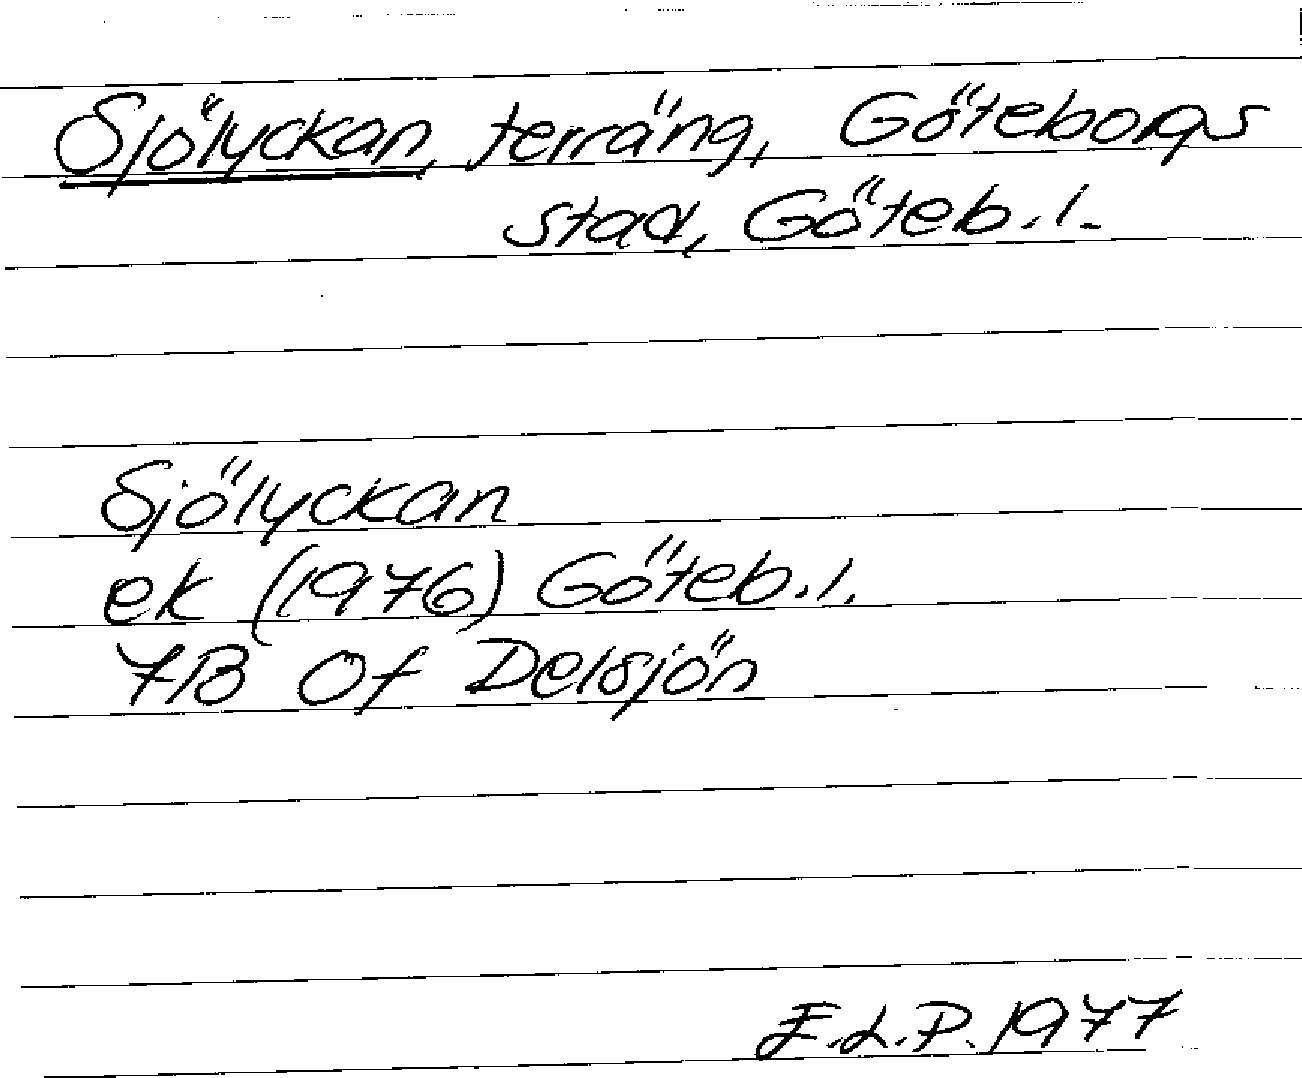 Sjölyckan, terräng, Göteborgs
stad, Göteb. l.
Sjölyckan
ek (1976) Göteb. l.
7B 0f Delsjön
E.L.P. 1977